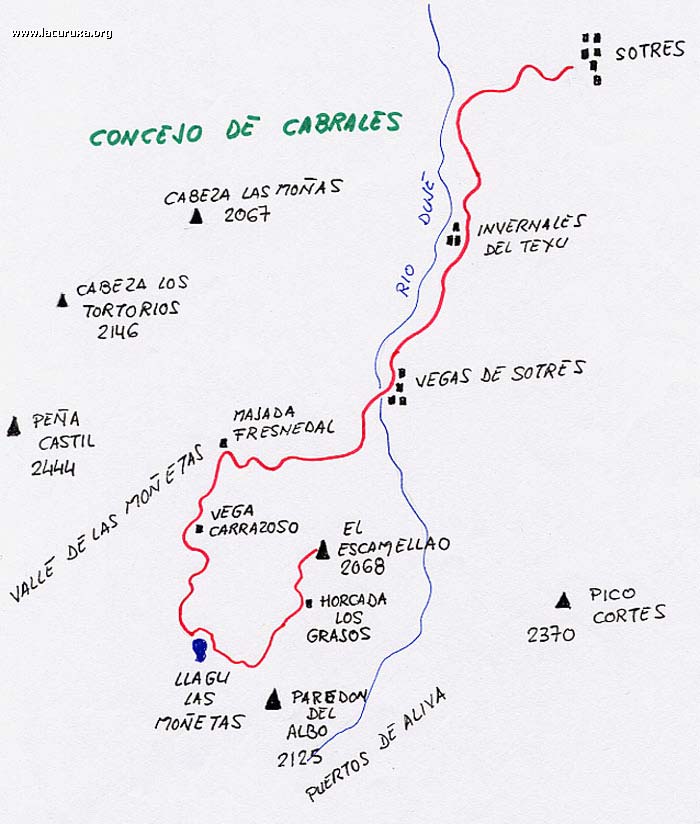 www.lacuruxa.org
SOTRES
CONCEJO DE CABRALES
CABEZA LAS MOÑAS
2067
RIO DUJÉ
INVERNALES
DEL TEXU
CABEZA LOS
TORTORIOS
2146
VEGAS DE SOTRES
PEÑA
CASTIL
2444
MAJADA
FRESNEDAL
VALLE DE LAS MOÑETAS
VEGA
CARRAZOSO
EL
ESCAMELLAO
2068
HORCADA
LOS
GRASOS
PICO
CORTES
2370
LLAGU
LAS
MOÑETAS
PAREDON
DEL
ALBO
2125
PUERTOS DE ALIVA